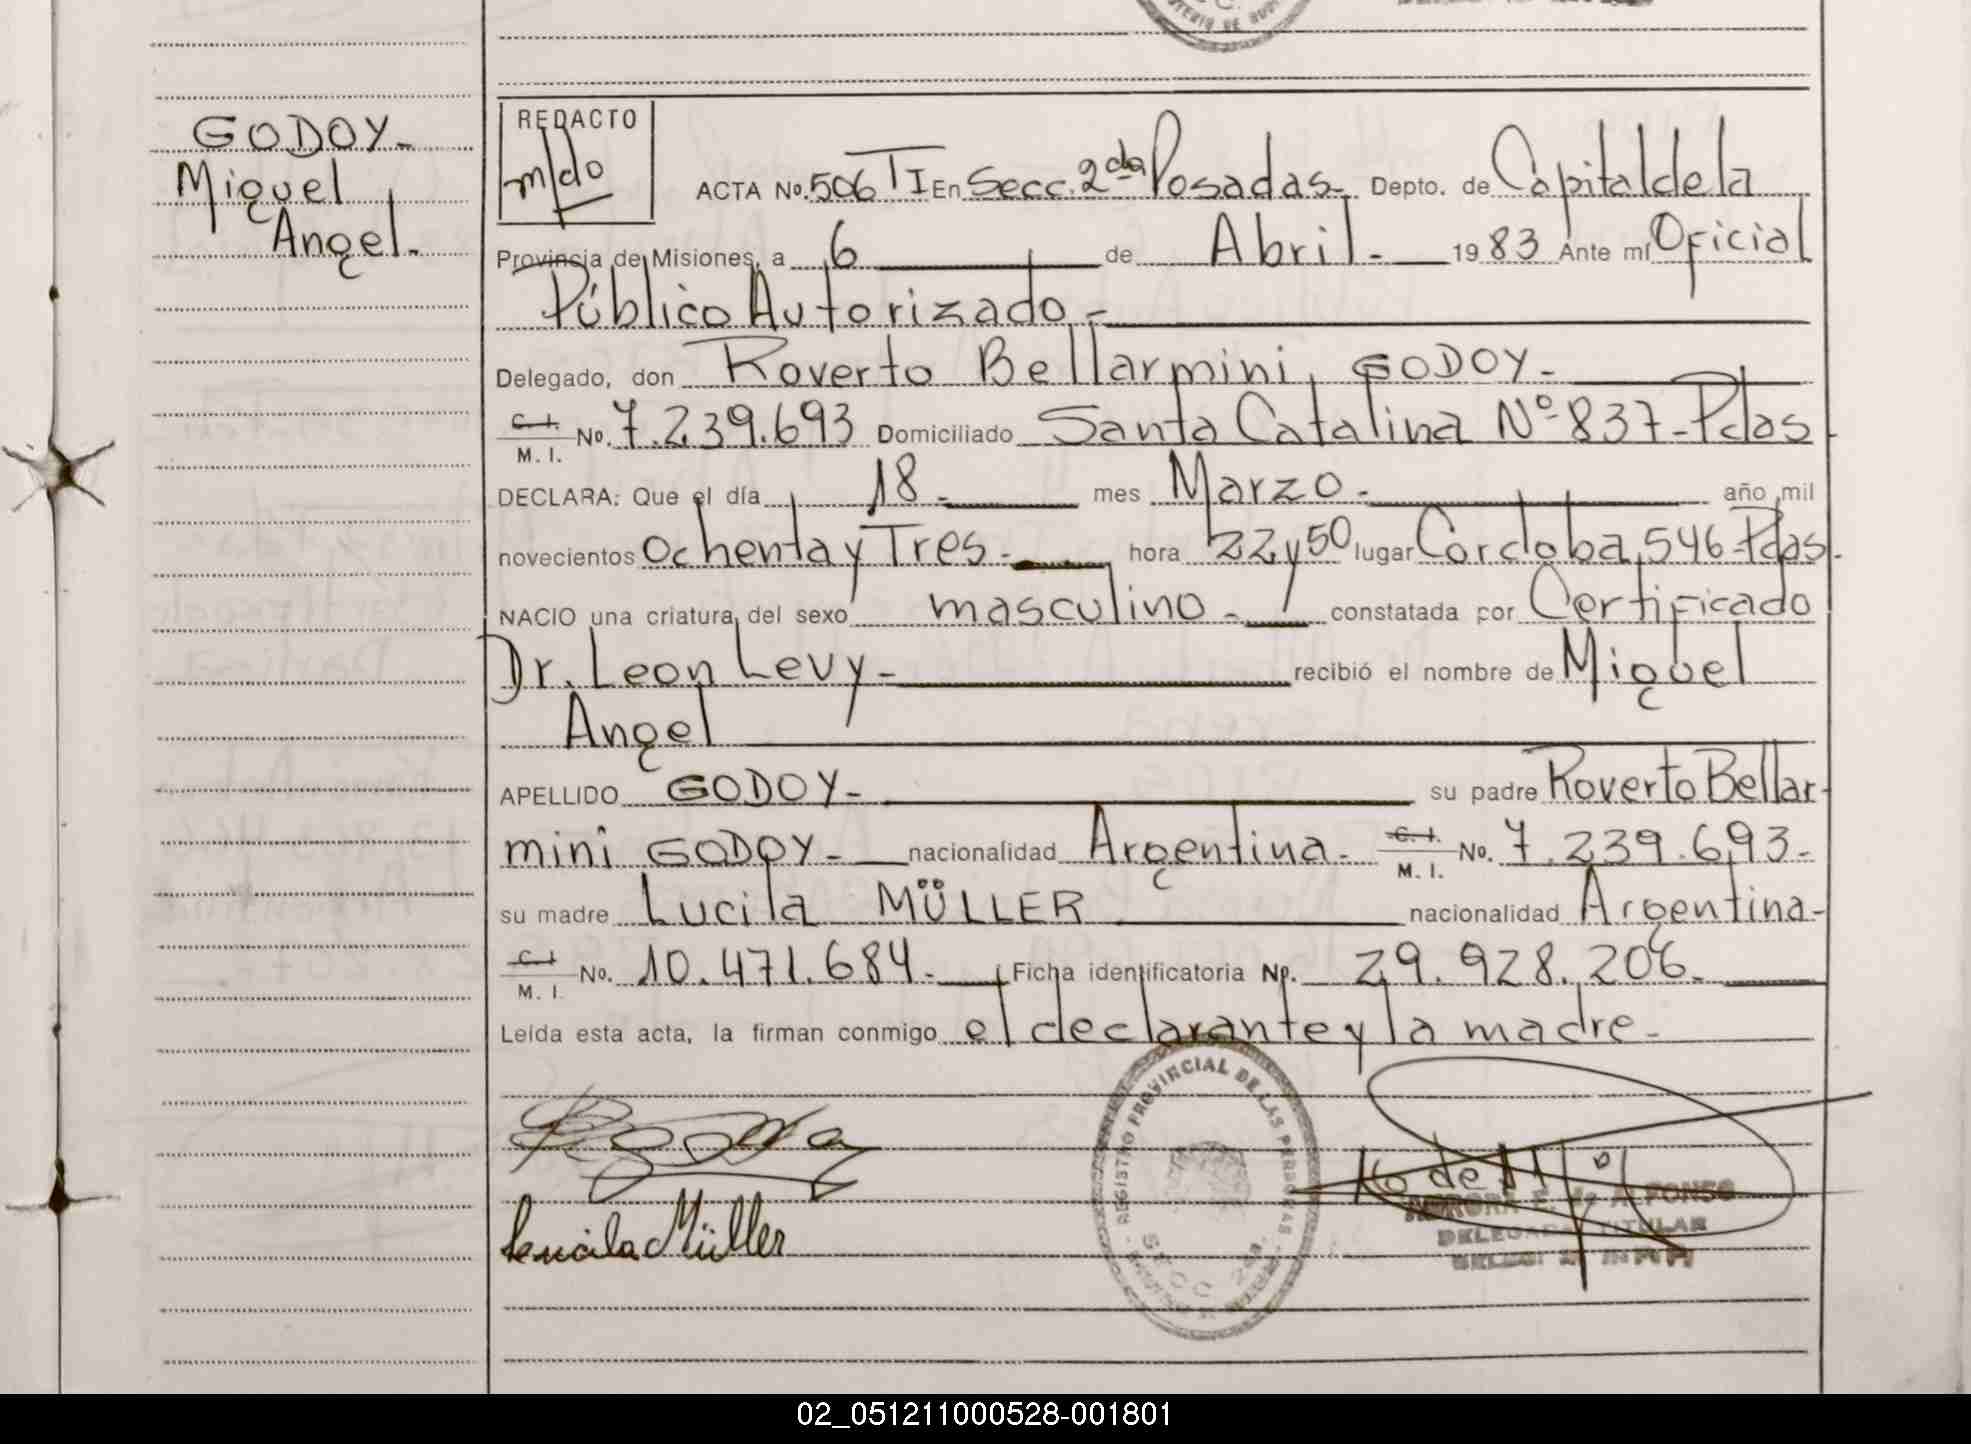 GODOY-
Miguel
Angel.
REDACTO
m/do
ACTA No. 506 TI En Secc. 2da Posadas- Depto. de Capital de la
Provincia de Misiones, a 6 de Abril.- 1983 Ante mí Oficial
Público Autorizado-
Delegado, don Roverto Bellarmini, GODOY-
C.I. M. I. No. 7.239.693 Domiciliado Santa Catalina Nº 837-Pdas.
DECLARA: Que el día 18.- mes Marzo.- año mil
novecientos Ochenta y Tres.- hora 22 y 50 lugar Cordoba, 546-Pdas.
NACIO una criatura del sexo masculino.- constatada por Certificado
Dr. Leon Levy- recibió el nombre de Miguel
Angel
APELLIDO GODOY- su padre Roverto Bellar-
mini GODOY- nacionalidad Argentina.- C.I. M. I. No. 7.239.693-
su madre Lucila MÜLLER nacionalidad Argentina-
C.I. M. I. No. 10.471.684.- Ficha identificatoria No. 29.928.206-
Leída esta acta, la firman conmigo el declarante y la madre-
Lucila Müller
REGISTRO PROVINCIAL DE LAS PERSONAS
SECC 2da.
AURORA E. de ALFONSO
DELEGADA TITULAR
02_051211000528-001801